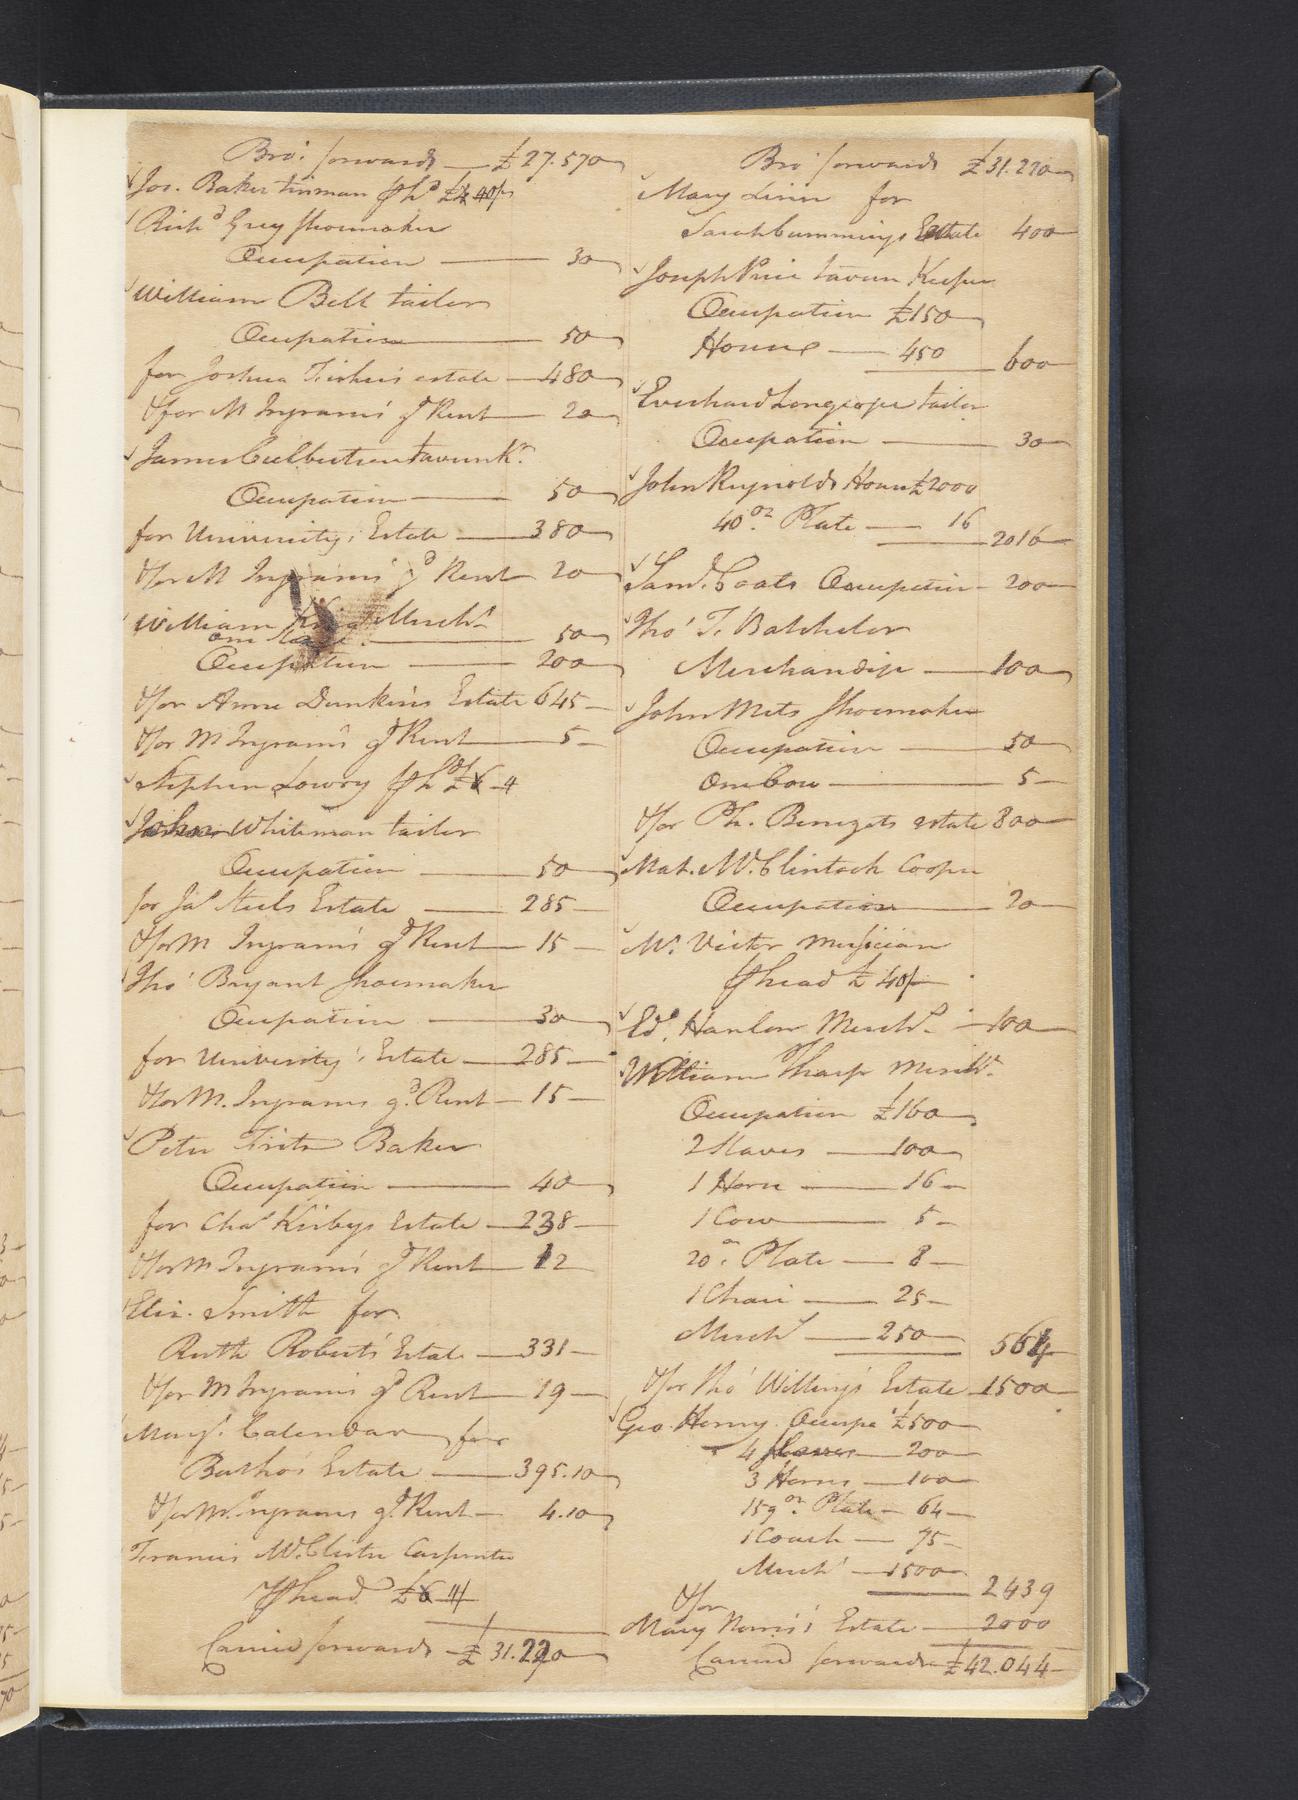 Bro.t forwards — £27.570
Jos. Baker tinman ⅌ h.d £4 40/
Rich.d Grey Shoemaker
Occupation — 30
William Bell tailor
Occupation — 50
for Joshua Fisher's estate — 480
Do for M Ingram's g.d Rent — 20
James Culbertson tavern k.r
Occupation — 50
for University's Estate — 380
Do for M Ingram's g.d Rent — 20
William King Merch.t
one Slave — 50
Occupation — 200
Do for Anne Dunkin's Estate 645 —
Do for M Ingram's g.d Rent — 5 —
Stephen Lowry ⅌ h.d £6 4
John Whitman tailor
Occupation — 50
for Ja.s Steels Estate — 285 —
Do for M Ingram's g.d Rent — 15 —
Tho.s Bryant Shoemaker
Occupation — 30
for University's Estate — 285 —
Do for M. Ingrams g.d Rent — 15 —
Peter Frits Baker
Occupation — 40
for Cha.s Kirbys Estate — 238 —
Do for M Ingram's g.d Rent — 12
Eliz. Smith for
Ruth Robert's Estate — 331 —
Do for M Ingram's g.d Rent — 19 —
Mary Calendar for
Bartho's Estate — 395.10
Do for M. Ingrams g.d Rent — 4.10
Francis McClister Carpenter
⅌ head £6 4
Carried forwards — £31.220
Bro.t forwards £31.220
Mary Linn for
Sarah Cummings Estate 400
Joseph Price tavern Keeper
Occupation £150
House — 450 600
Everhard Longcope tailor
Occupation — 30
John Reynolds House £2000
40 oz. Plate — 16 2016
Sam.l Coats Occupation — 200
Tho.s T. Batchelor
Merchandise — 100
John Mets Shoemaker
Occupation — 50
One Cow — 5 —
Do for Ph. Benezets estate 800
Mat. McClintock Cooper
Occupation — 20
M.r Victor Musician
⅌ head £ 40/
Ed.d Hanlon Merch.d — 100
William Tharp Merch.t
Occupation £160
2 Slaves — 100
1 Horse — 16 —
1 Cow — 5 —
20 oz. Plate — 8 —
1 Chair — 25 —
Merch.d — 250 564
Do for Tho.s Willing's Estate 1500
Geo. Henry. Occupa.n £500
4 Slaves — 200
3 Horses — 100
159 oz. Plate — 64 —
1 Coach — 75 —
Merch.d — 1500
2439
Do for
Mary Norris's Estate — 2000
Carried forwards £42.044 —